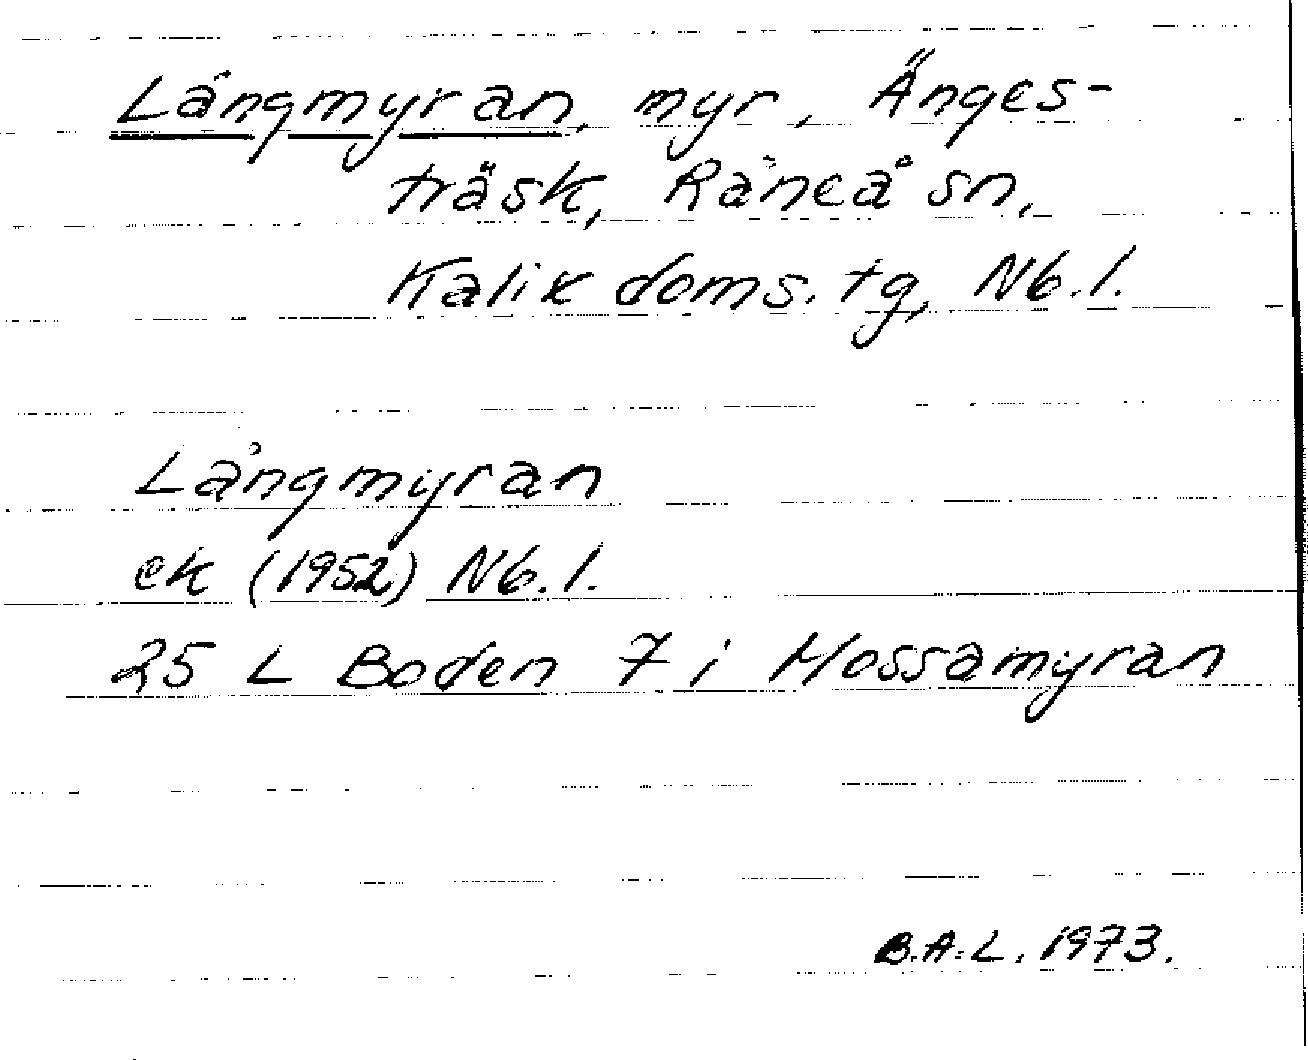 Långmyran, myr, Änges-
träsk, Råneå sn,
Kalix doms. tg, Nb. l.
Långmyran
ek (1952) Nb. l.
25 L Boden 7 i Mossamyran
B.A.L. 1973.